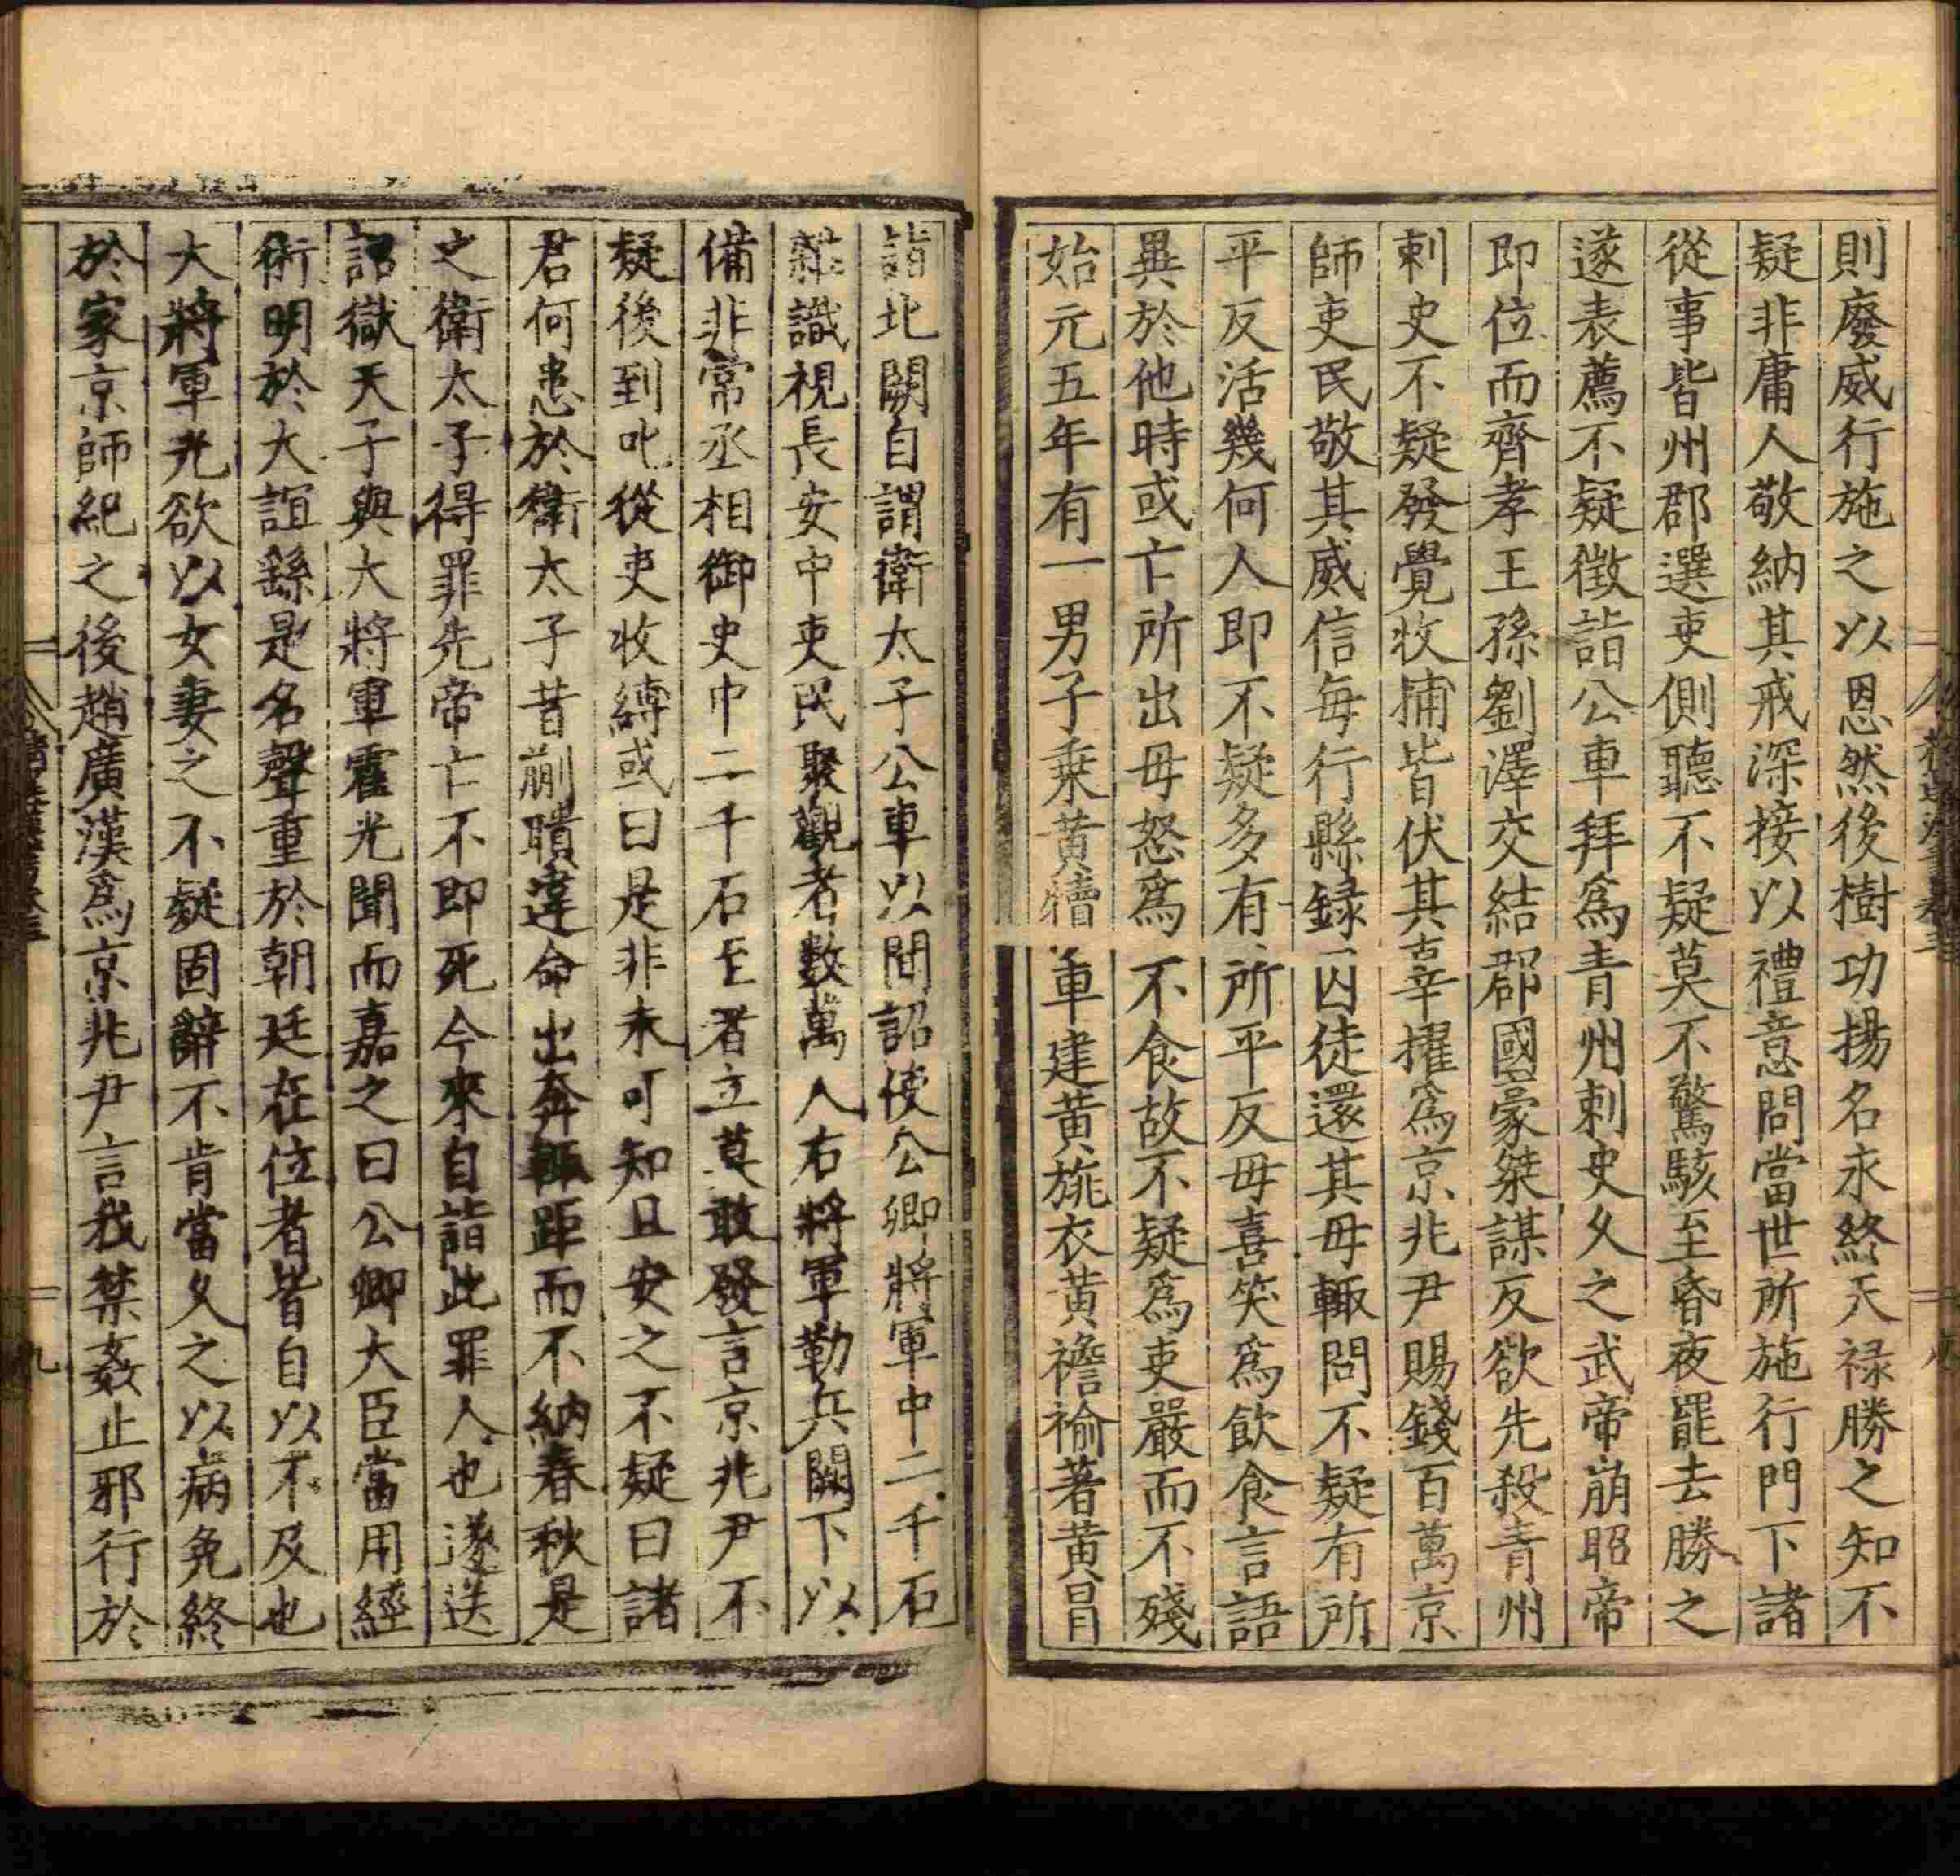 則廢威行施之以恩然後樹功揚名永終天禄勝之知不
疑非庸人敬納其戒深接以禮意問當世所施行門下諸
從事皆州郡選吏側聽不疑莫不驚駭至昏夜罷去勝之
遂表薦不疑徵詣公車拜爲青州刺史久之武帝崩昭帝
即位而齊孝王孫劉澤交結郡國豪桀謀反欲先殺青州
刺史不疑發覺收捕皆伏其辜擢爲京兆尹賜錢百萬京
師吏民敬其威信每行縣録囚徒還其母輙問不疑有所
平反活幾何人即不疑多有所平反母喜笑爲飲食言語
異於他時或亡所出母怒爲不食故不疑爲吏嚴而不殘
始元五年有一男子乗黄犢車建黄旐衣黄襜褕著黄冒
詣北闕自謂衛太子公車以聞詔使公卿將軍中二千石
雜識視長安中吏民聚觀者數萬人右將軍勒兵闕下以
備非常丞相御史中二千石至者立莫敢發言京兆尹不
疑後到叱從吏收縛或曰是非未可知且安之不疑曰諸
君何患於衛太子昔蒯聵違命出奔輙距而不納春秋是
之衛太子得罪先帝亡不即死今來自詣此罪人也遂送
詔獄天子與大將軍霍光聞而嘉之曰公卿大臣當用經
術明於大誼繇是名聲重於朝廷在位者皆自以不及也
大將軍光欲以女妻之不疑固辭不肯當久之以病免終
於家京師紀之後趙廣漢爲京兆尹言我禁姦止邪行於
九